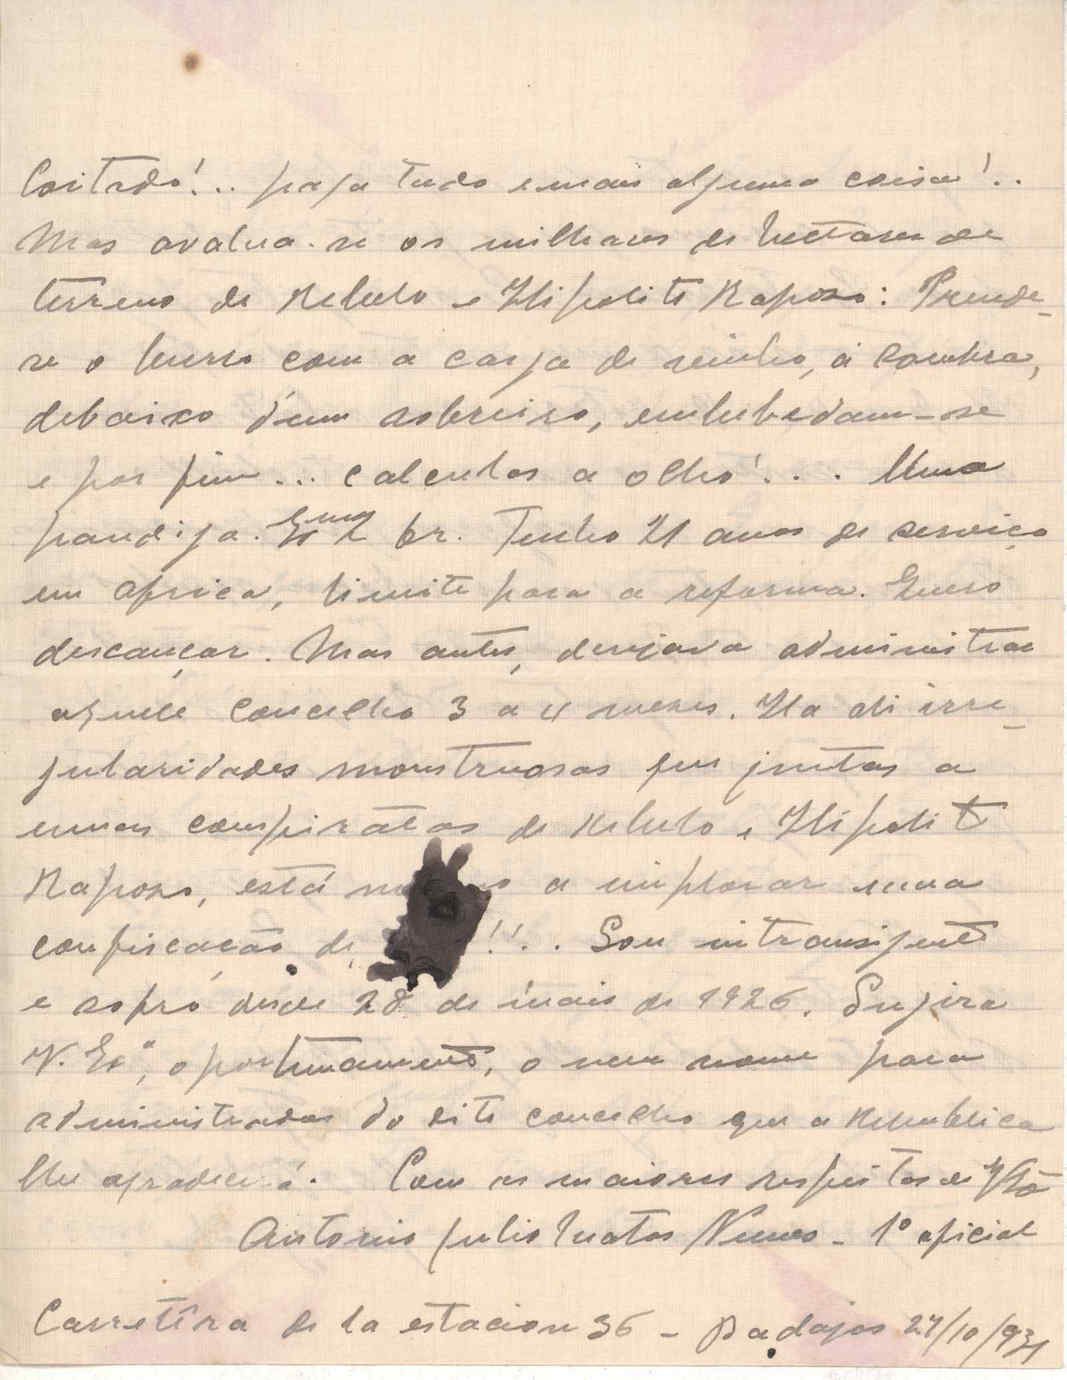 Coitado!.. paga tudo e mais alguma coisa!..
Mas avalua-se os milhares de hectares de
terreno de Rebelo e Hipolito Raposo: Prende-
se o burro com a carga de vinho, á sombra,
debaixo d'um sobreiro, embebedam-se
e por fim... calculos a olho!... Uma
pandiga. Exmo Sr. Tenho 21 anos de serviço
em Africa, limite para a reforma. Quero
descançar. Mas antes, desejava administrar
aquele concelho 3 a 4 mezes. Ha ali irre-
gularidades monstruosas que juntas a
umas conspiratas de Rebelo e Hipolito
Raposo, está a implorar uma
confiscação de !!.. Sou intransigente
e sofro desde 28 de maio de 1926. Sugira
V. Exª, oportunamente, o meu nome para
administrador do dito concelho que a Republica
lhe agradecerá. Com os maiores respeitos de
Antonio Julio Matos Nunes - 1º oficial
Carretêra de la estacion 36 - Badajos 27/10/931